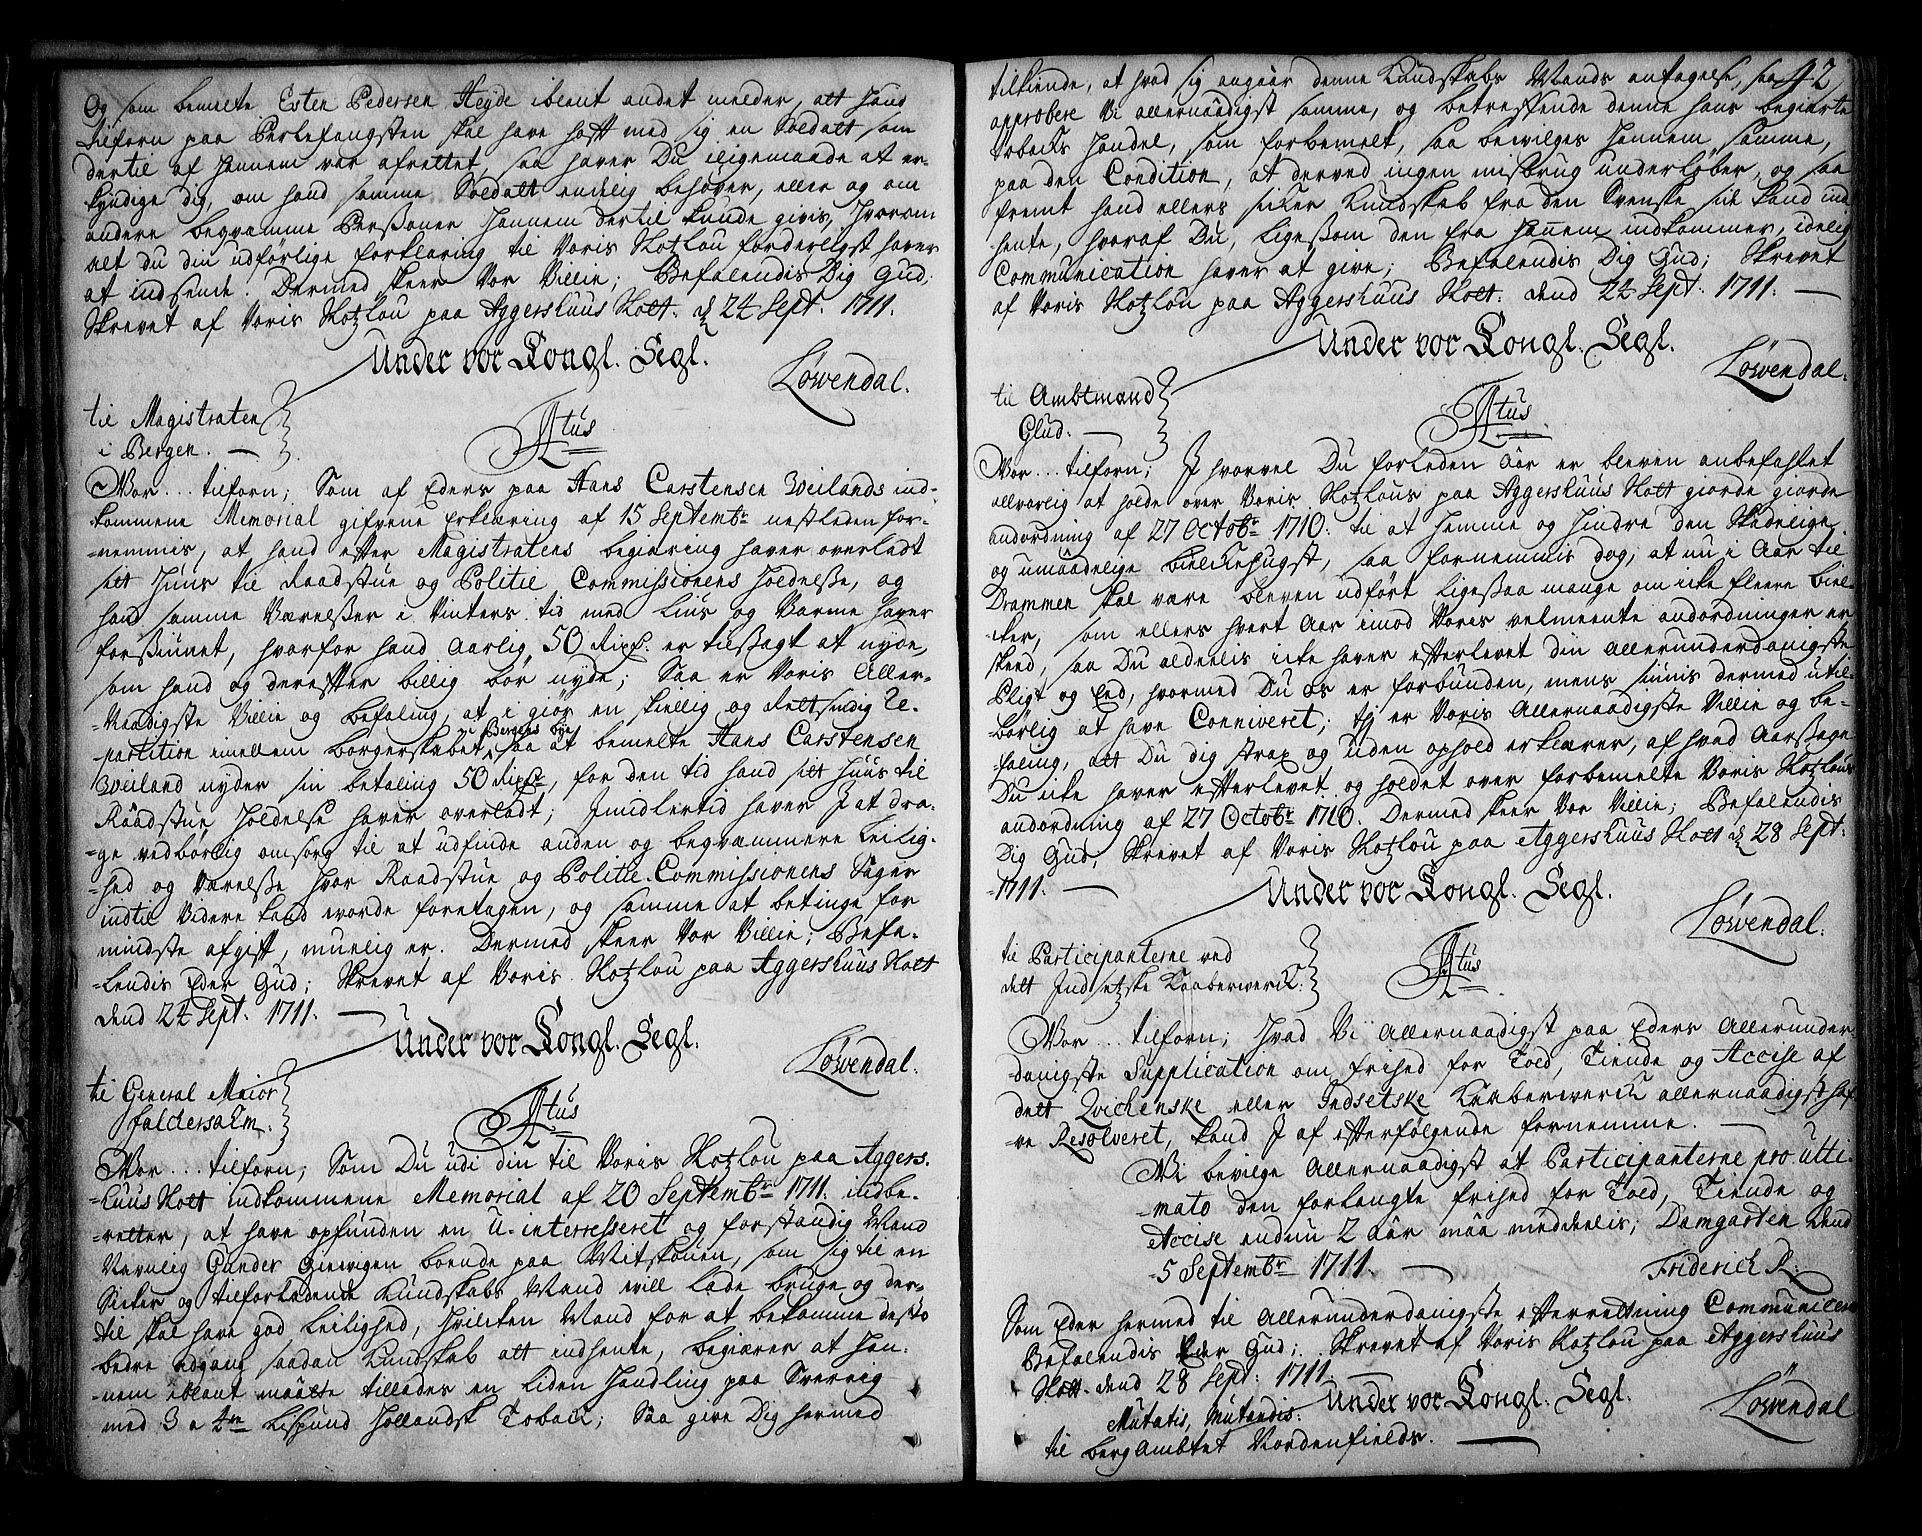 Og som bemelte Esten Pedersen Heyde iblant andet melder, att hand
tilforn paa Perlefangsten skal have hafft med sig en Soldatt som
dertil af hannem var afrettet, saa haver Du iligemaade at er-
kyndige dig, om hand samme Soldatt endelig behøver, eller og om
andere beqvamme Persohner hannem dertil kunde givis, hvorom
alt du din udførlige forklaring til Voris Slotzlou forderligst haver
at indsende. Dermed skeer Vor Villie; Befalendis Dig Gud;
Skrevet af Voris Slotzlou paa Aggershuus Slott. d. 24 Sept. 1711.
Under vor Kongl. Segl.
Løvendal.
til Magistraten
i Bergen.
Atus
Vor... tilforn; Som af Eders paa Hans Carstensen Weilands ind-
kommene Memorial gifvene Erklæring af 15 Septembr nestleden for-
-nemmis, at hand efter Magistratens begiæring haver overladt
sitt Huus til Raadstue og Politie Commissionens holdelse, og
hand samme Værelser i Vinters tid med Lius og Varme haver
forsiunet, hvorfor hand Aarlig 50 Rixd. er tilsagt at nyde,
som hand og derefter billig bør nyde; Saa er Voris Aller-
-Naadigste Villie og befaling, at i giør en skiellig og Rettsindig Re-
partition imellem borgerskabet i Bergens bye saa at bemelte Hans Carstensen
Weiland nyder sin betaling 50 Rixdr, for den tid hand sitt Huus til
Raadstue Holdelse haver overladt; Imidlertid haver I at dra-
-ge vedbørlig omsorg til at udfinde anden og beqvammere Leilig-
-hed og Værelse hvor Raadstue og Politie-Commissionens Sager
indtil Videre kand worde foretagen, og samme at betinge for
mindste afgift, muelig er. Dermed skeer Vor Villie; Befa-
-lendis Eder Gud; Skrevet af Voris Slotzlou paa Aggershuus Slott
dend 24 Sept. 1711.
Under vor Kongl. Segl.
Løvendal.
til General Maior
Schaldersalm.
Atus
Vor... tilforn; Som Du udi din til Voris Slotzlou paa Aggers-
-huus Slott indkommene Memorial af 20 Septembr 1711. indbe-
-retter, at have opfunden en U-interesseret og forstandig Mand
Navnlig Gunder Gievigen boende paa Mitskouen, som sig til en
Sicker og tilforladende Kundskabs Mand will lade bruge og der-
til skal have god Leilighed, hvilken Mand for at bekomme desto
bedre adgang saadan Kundskab att indhente, begiærer at han-
-nem iblant maatte tillades en liden Handling paa Sverrig
med 3 a 4re Lispund Hollandsk Toback; Saa give Dig hermed
42
tilkiende, at hvad sig angaar denne Kundskabs Mands antagelse, saa
approbere Vi allernaadigst samme, og betreffende denne hans begierte
Tobachs handel, som forbemelt, saa bevilges hannem samme,
paa den Condition, at derved ingen misbrug underløber, og saa
fremt hand ellers sicker Kundskab fra den Svenske side kand ind
hente, hvoraf Du, ligesom den fra hannem indkommer, idelig
Communication haver at give; Befalendis Dig Gud; Skrevet
af Voris Slotzlou paa Aggershuus Slott. dend 24 Sept. 1711.
Under vor Kongl. Segl.
Løvendal.
til Ambtmand
Glud.
Atus
Vor... tilforn; Ihvorvel Du forleden Aar er bleven anbefalet
alvorlig at holde over Voris Slotzlous paa Aggershuus Slott giorde giorde
andordning af 27 Octobr 1710. til at hemme og hindre den Skadelige
og umaadelige bielckehugst, saa fornemmis dog, at nu i Aar til
Drammen skal være bleven udført ligesaa mange om icke fleere biel-
-cker, som ellers hvert Aar imod Voris velmeente andordninger er
skeed, saa Du aldeelis icke haver efterlevet din Allerunderdanigste
Pligt og Eed, hvormed Du os er forbunden, mens siunis dermed util-
børlig at have Conniveret; thj er Voris Allernaadigste Villie og be-
faling, att Du dig strax og uden ophold erklærer, af hvad Aarsage
Du icke haver efterlevet og holdet over forbemelte Voris Slotzlous
andordning af 27 Octobr 1710. Dermed skeer Vor Villie; Befalendis
Dig Gud, Skrevet af Voris Slotzlou paa Aggershuus Slott d. 28 Sept:
-1711.
Under vor Kongl. Segl.
Løvendal.
til Participanterne ved
dett Indsetzske Kaaberwerck.
Atus
Vor... tilforn; Hvad Vi Allernaadigst paa Eders Allerunder-
-danigste Supplication om frihed for Told, Tiende og Accise af
dett Qvichenske eller Indsetske Kaaberwerck allernaadigst haf-
-ve Resolveret, kand I af efterfølgende fornemme.
Vi bevilge Allernaadigst at Participanterne pro ulti-
-mato den forlangte frihed for Told, Tiende og
Accise endnu 2 aar maa meddeelis; Damgarten dend
5 Septembr 1711.
Friderich R.
Som Eder hermed til Allerunderdanigste efterretning Communiceris
Befalendis Eder Gud; Skrevet af Voris Slotzlou paa Aggershuus
Slott. dend 28 Sept. 1711.
Under vor Kongl. Segl.
Løvendal
Mutatis, Mutandis.
til bergAmbtet Nordenfields.